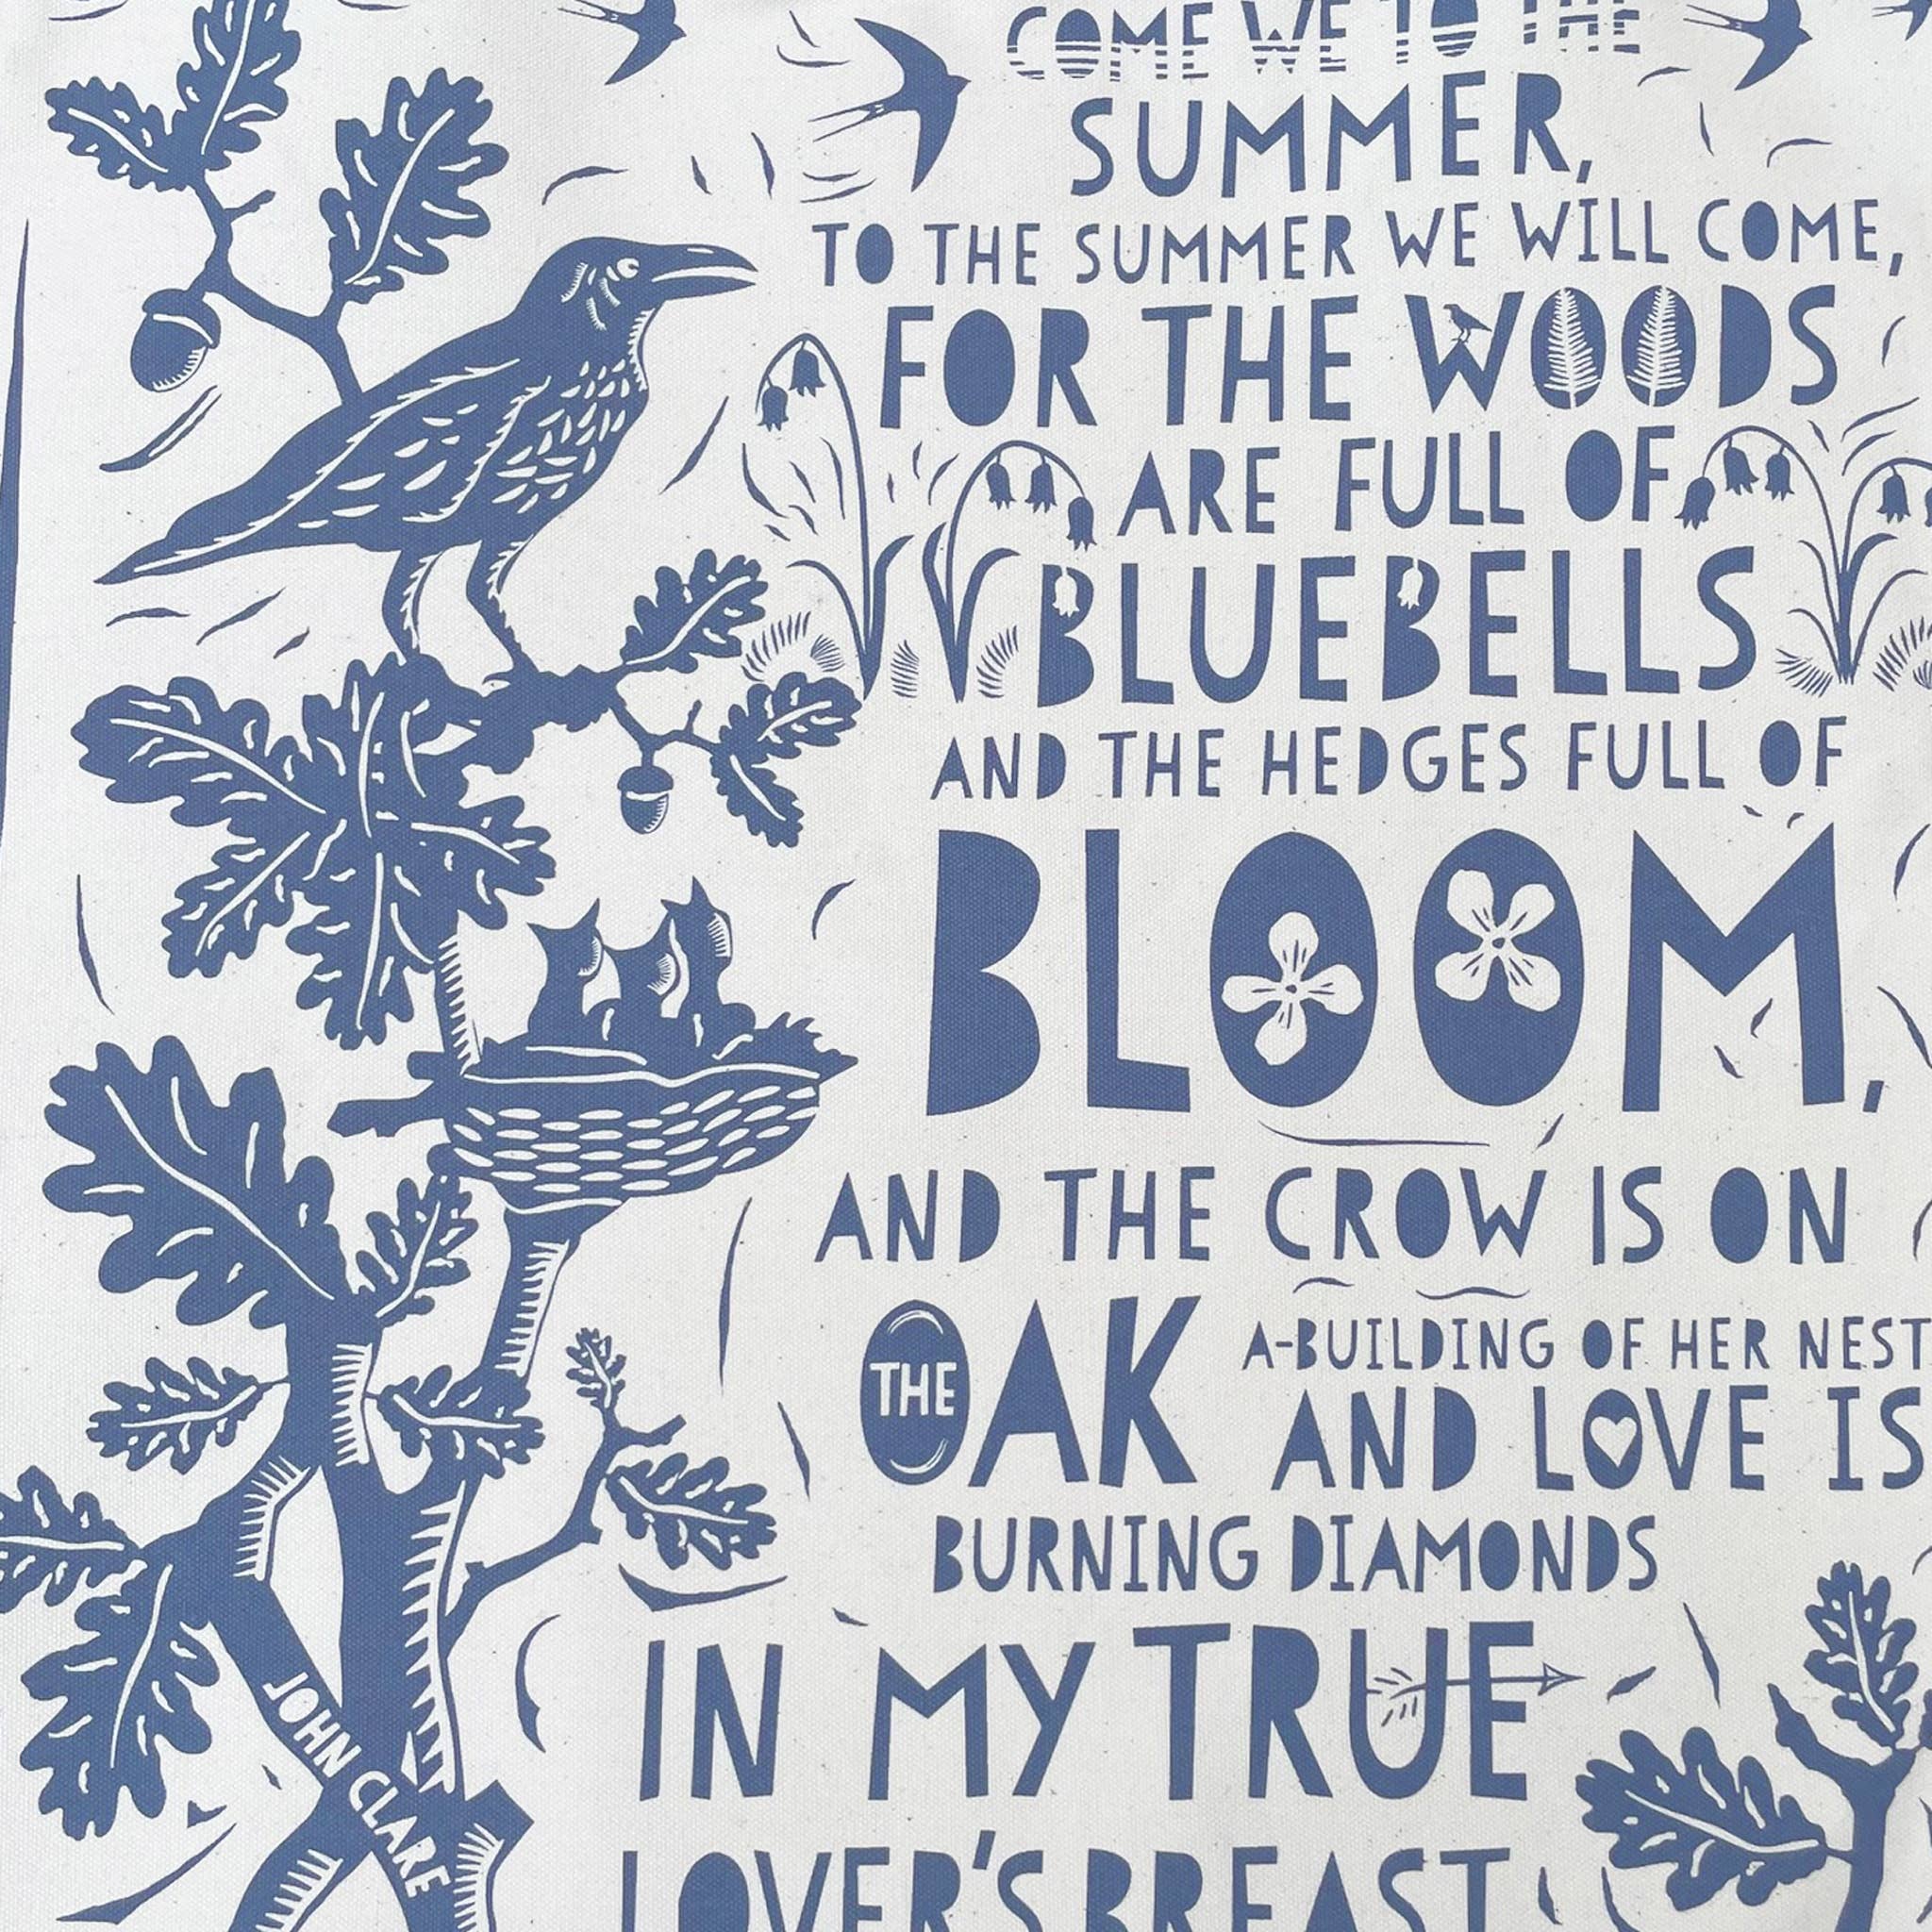 COME WE TO THE
SUMMER,
TO THE SUMMER WE WILL COME,
FOR THE WOODS
ARE FULL OF
BLUEBELLS
AND THE HEDGES FULL OF
BLOOM,
AND THE CROW IS ON
THE
OAK A-BUILDING OF HER NEST
AND LOVE IS
BURNING DIAMONDS
IN MY TRUE
LOVER'S BREAST
JOHN CLARE